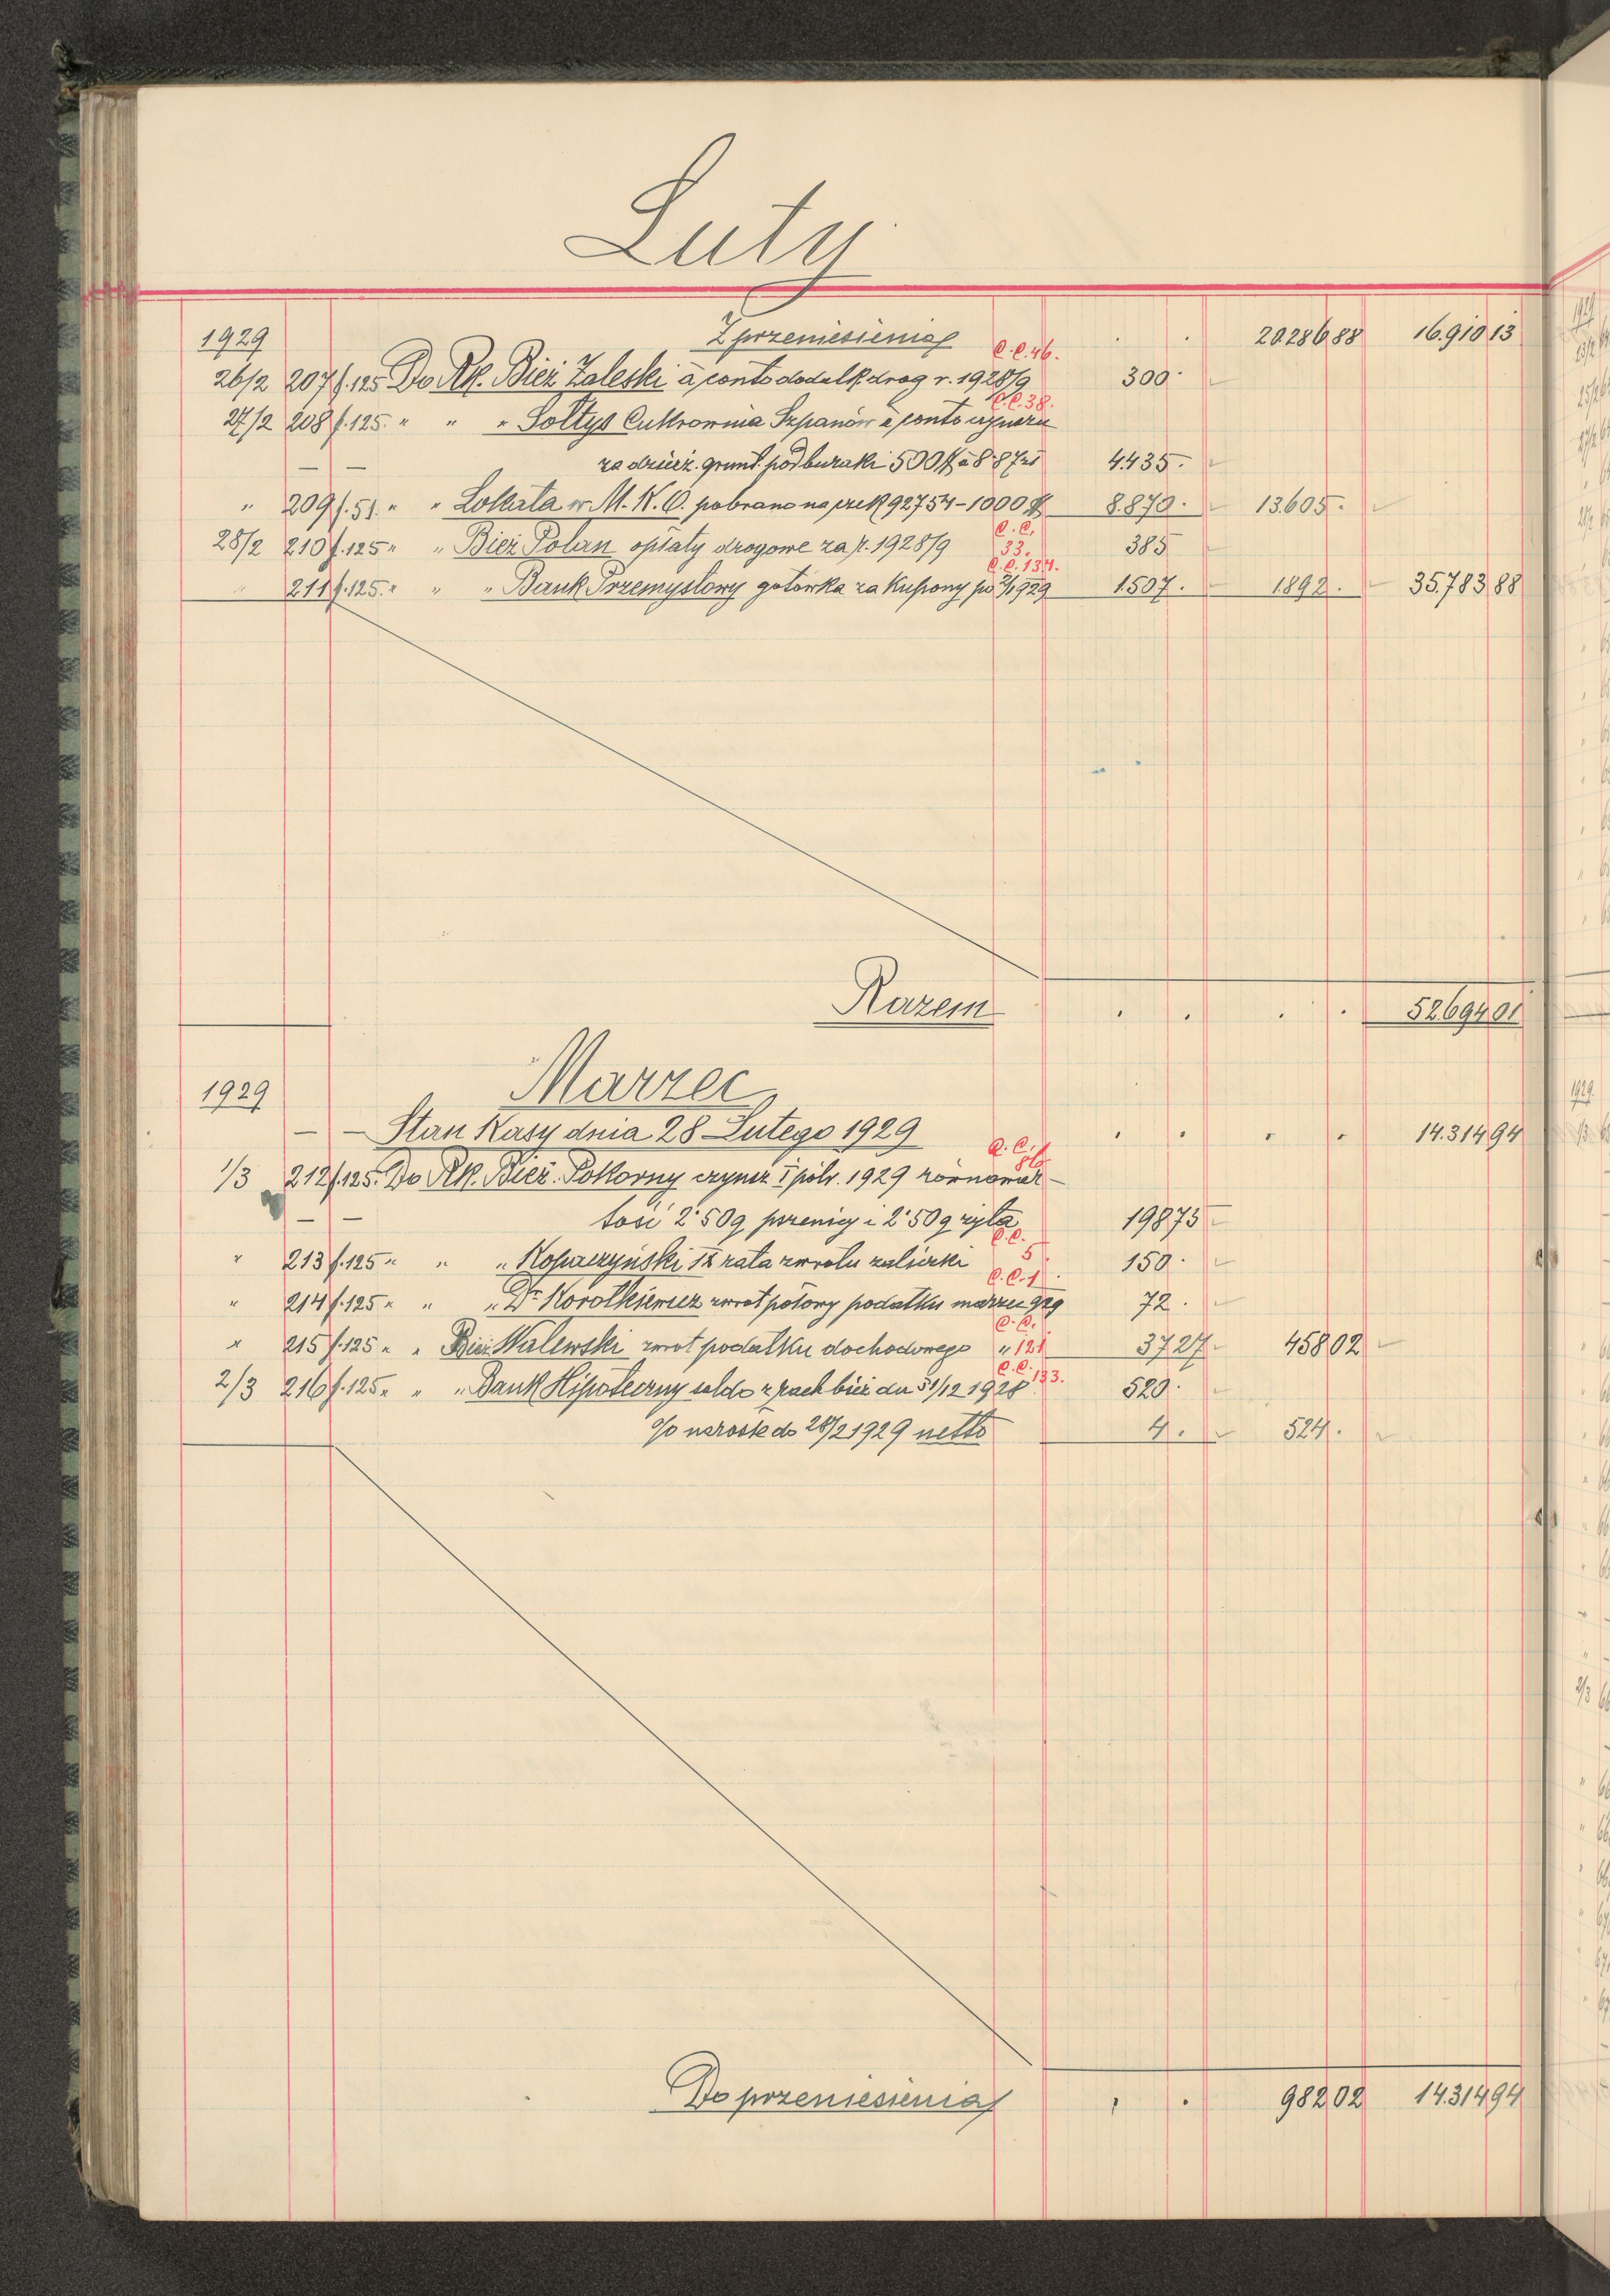 Luty
1929 Z przeniesienia . . 20286 88 16.910 13
C.C. 46.
26/2 207 f.125 Do Rk. Bież Zaleski à conto dodatk. drog r. 1928/9 300 · —
C.C. 38.
27/2 208 f.125. " " " Sołtys Cukrownia Szpanów à conto czynszu
— — za dzierż. grunt. pod buraki 500 $ à 8·87 zł 4.435. —
" 209 f.51. " " Lokata w M.K.O. pobrano na czek 92754 – 1000 $ 8.870. — 13.605. —
C.C.
28/2 210 f.125 " " Bież Polan opłaty drogowe za r. 1928/9 33. 385 —
C.C. 134.
" 211 f.125. " " " Bank Przemysłowy gotówka za kupony po 2/1 929 1.507. — 1.892. — 35.783 88
Razem . . . . 52.694 01
Marzec
1929
— — Stan Kasy dnia 28 Lutego 1929 . . . . 14.314 94
C.C.
1/3 212 f.125. Do Rk. Bież. Pokorny czynsz I półr. 1929 równowar-
— — tość 2·50 q pszenicy i 2·50 q żyta 198 75 —
C.C.
" 213 f.125 " " " Kopaczyński 12 rata zwrotu zaliczki 5 150. —
C.C. 1.
" 214 f.125 " " " Dr. Korotkiewicz zwrot połowy podatku marzec 929 72. —
C.C.
" 215 f.125 " " Bież. Walewski zwrot podatku dochodowego " 121 37 27 458 02 —
C.C. 133.
2/3 216 f.125 " " " Bank Hipoteczny saldo z rach bież dn 31/12 1928 520. —
% narosłe do 28/2 1929 netto 4. — 524. —
Do przeniesienia . . 982 02 14.314 94